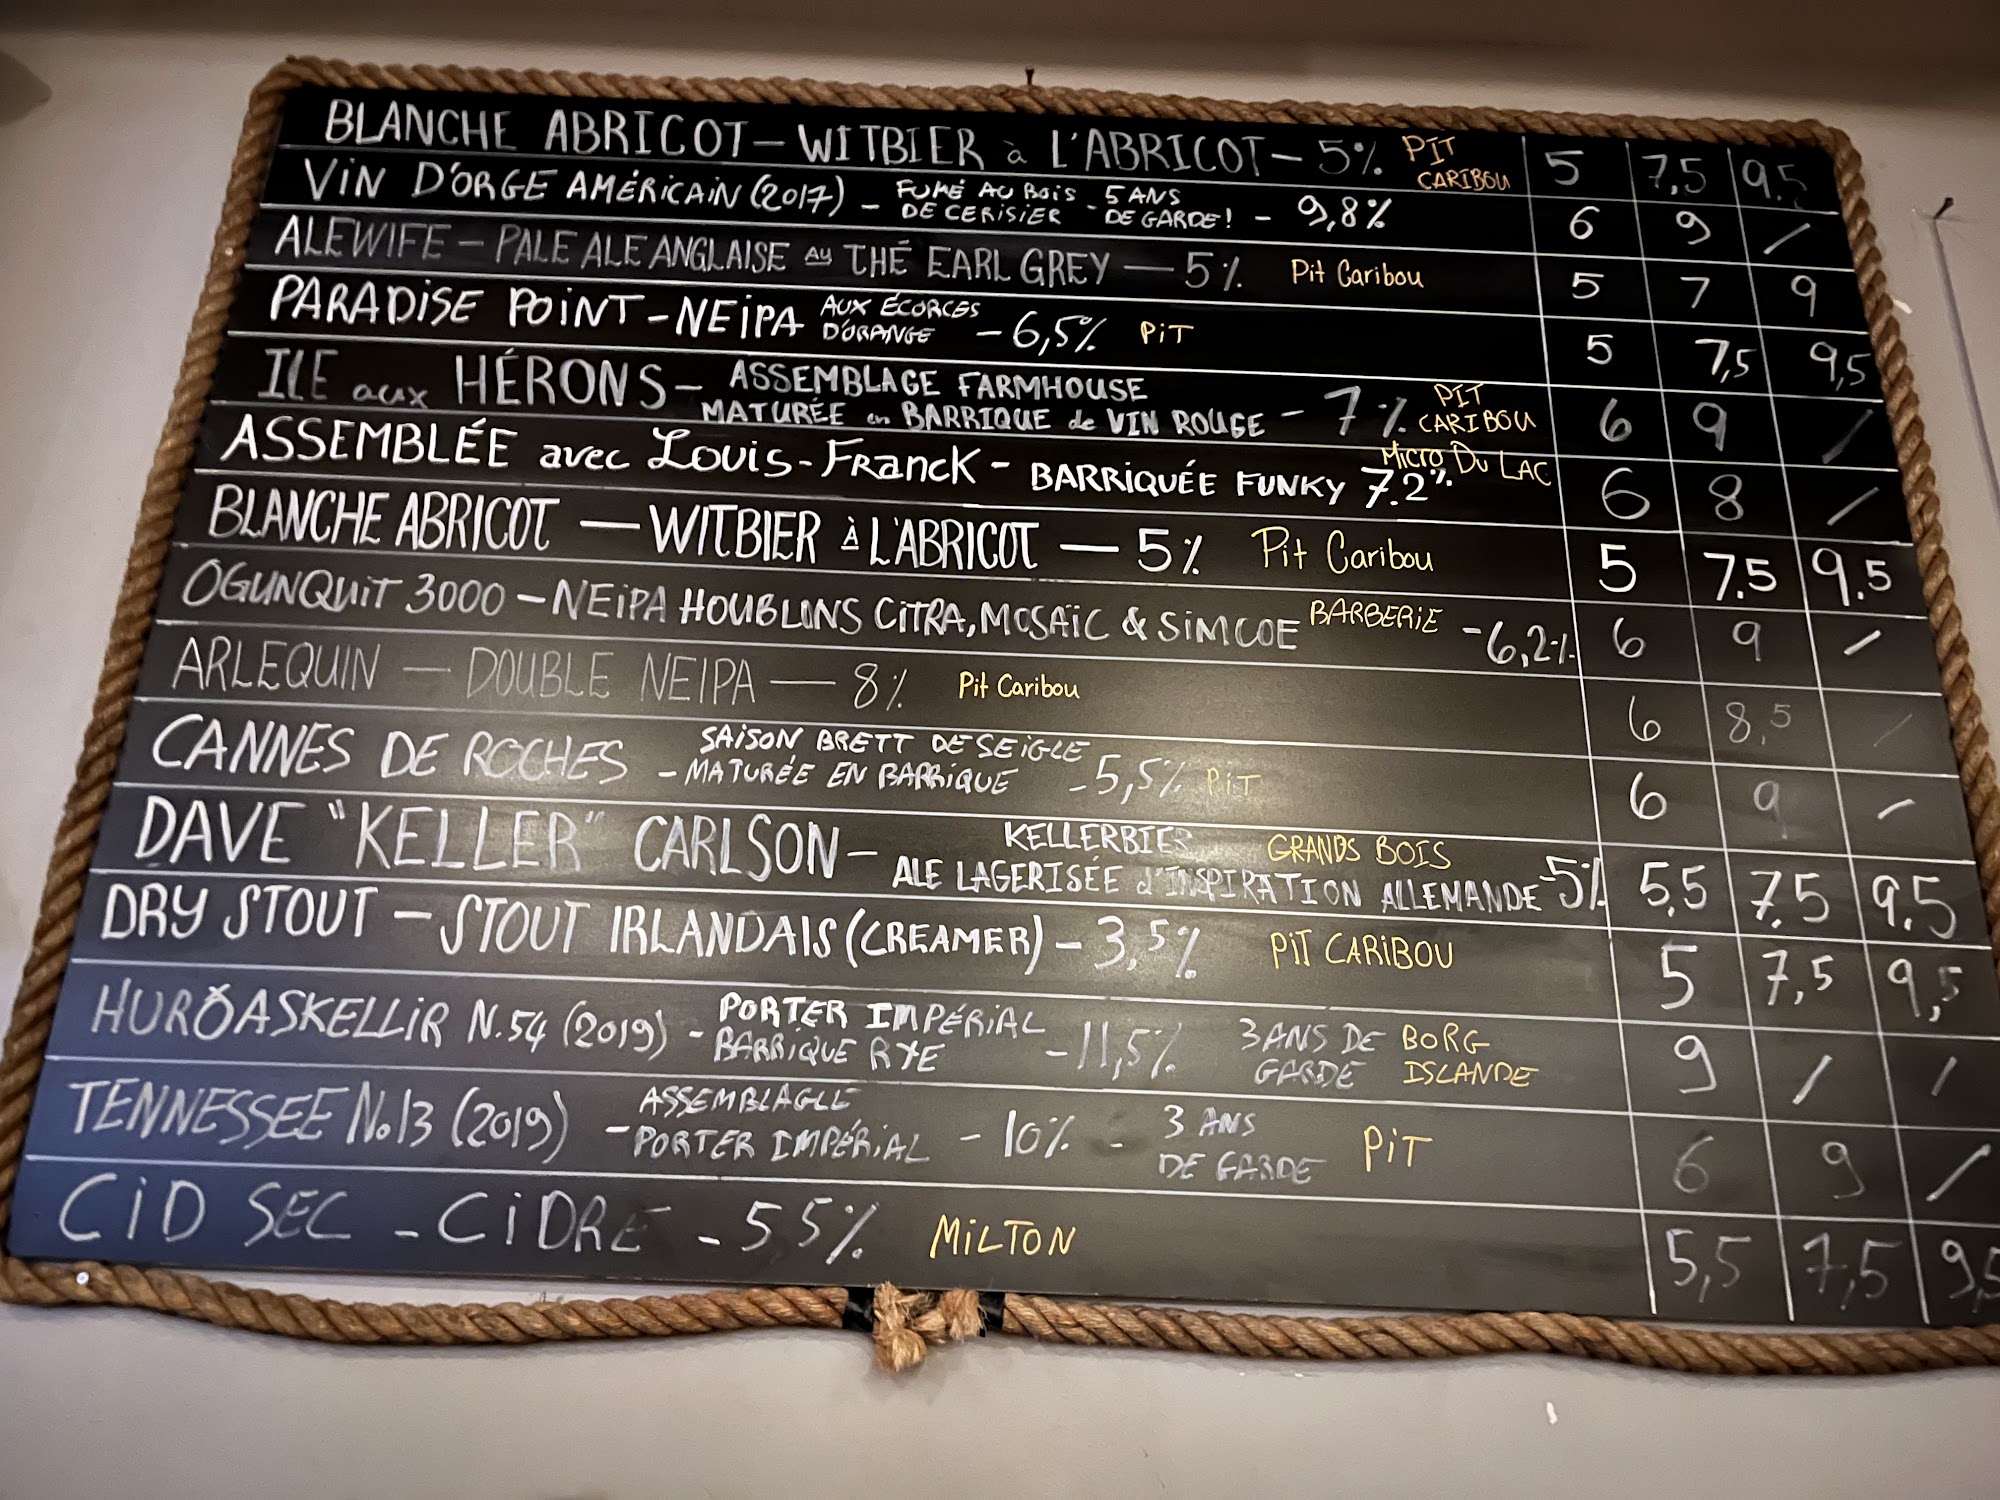 BLANCHE ABRICOT — WITBIER à L'ABRICOT — 5% PIT CARIBOU 5 7,5 9,5
VIN D'ORGE AMÉRICAIN (2017) – FUMÉ AU BOIS DE CERISIER - 5 ANS DE GARDE! - 9,8% 6 9 /
ALEWIFE — PALE ALE ANGLAISE AU THÉ EARL GREY — 5% Pit Caribou 5 7 9
PARADISE POINT – NEIPA AUX ÉCORCES D'ORANGE – 6,5% PIT 5 7,5 9,5
ILE aux HÉRONS – ASSEMBLAGE FARMHOUSE MATURÉE en BARRIQUE de VIN ROUGE – 7% PIT CARIBOU 6 9 /
ASSEMBLÉE avec Louis-Franck - BARRIQUÉE FUNKY 7.2% Micro Du LAC 6 8 /
BLANCHE ABRICOT — WITBIER À L'ABRICOT — 5% Pit Caribou 5 7.5 9.5
OGUNQUIT 3000 – NEIPA HOUBLONS CITRA, MOSAÏC & SIMCOE BARBERIE - 6,2% 6 9 /
ARLEQUIN — DOUBLE NEIPA — 8% Pit Caribou 6 8,5 /
CANNES DE ROCHES – SAISON BRETT DE SEIGLE MATURÉE EN BARRIQUE – 5,5% PIT 6 9 /
DAVE "KELLER" CARLSON – KELLERBIER ALE LAGERISÉE d'INSPIRATION ALLEMANDE GRANDS BOIS - 5% 5,5 7,5 9,5
DRY STOUT – STOUT IRLANDAIS (CREAMER) – 3,5% PIT CARIBOU 5 7,5 9,5
HURÐASKELLIR N.54 (2019) - PORTER IMPÉRIAL BARRIQUE RYE – 11,5% 3 ANS DE GARDE BORG ISLANDE 9 / /
TENNESSEE No.13 (2019) – ASSEMBLAGLE PORTER IMPÉRIAL – 10% - 3 ANS DE GARDE PIT 6 9 /
CID SEC – CIDRE – 5,5% MILTON 5,5 7,5 9,5